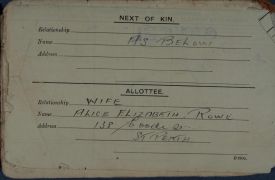 NEXT OF KIN.
Relationship
Name AS BELOW
Address
ALLOTTEE.
Relationship WIFE
Name ALICE ELIZABETH ROWE
Address 138
ST PERTH